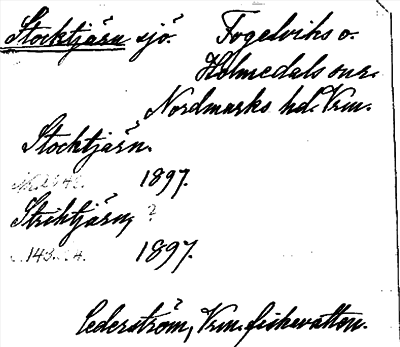 Stocktjärn sjö. Fogelviks o.
Holmedals snr.
Nordmarks hd. Vrm.
Stocktjärn.
1897.
Striktjärn, ?
1897.
Cederström, Vrm. fiskevatten.